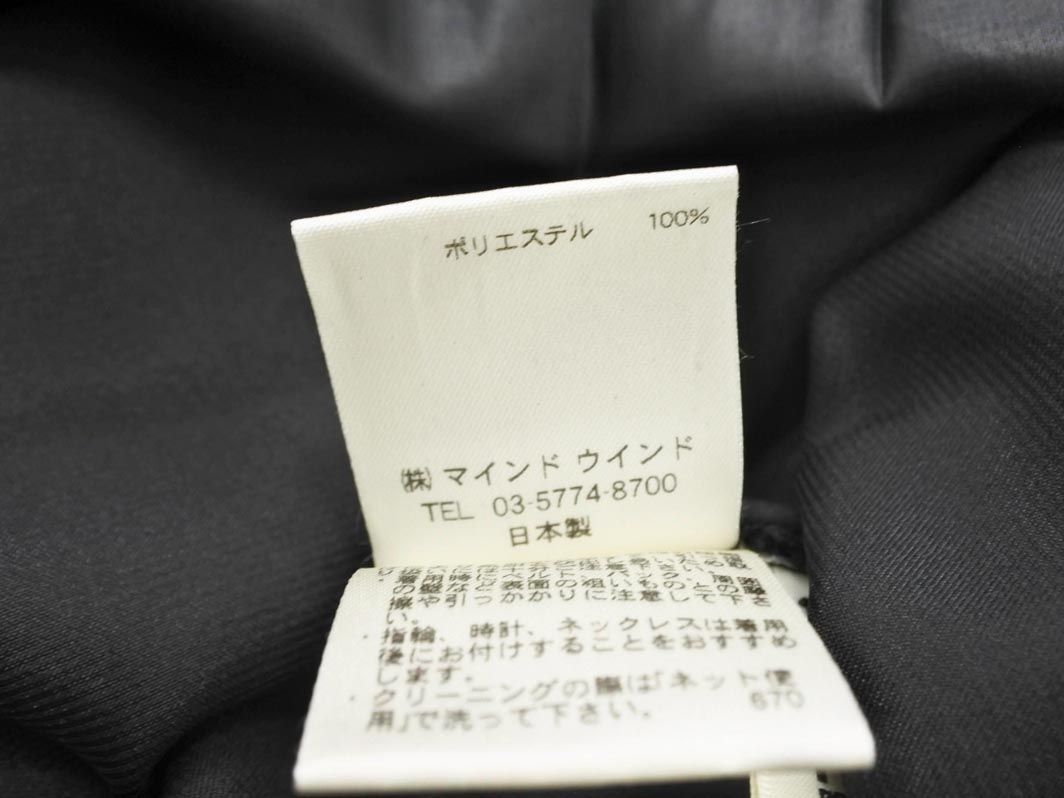 ポリエステル 100%
㈱ マインド ウインド
TEL 03-5774-8700
日本製
擦や引っかかりに注意して下さ
い。
・指輪、時計、ネックレスは着用
後にお付けすることをおすすめ
します。
・クリーニングの際は「ネット使
用」で洗って下さい。 670